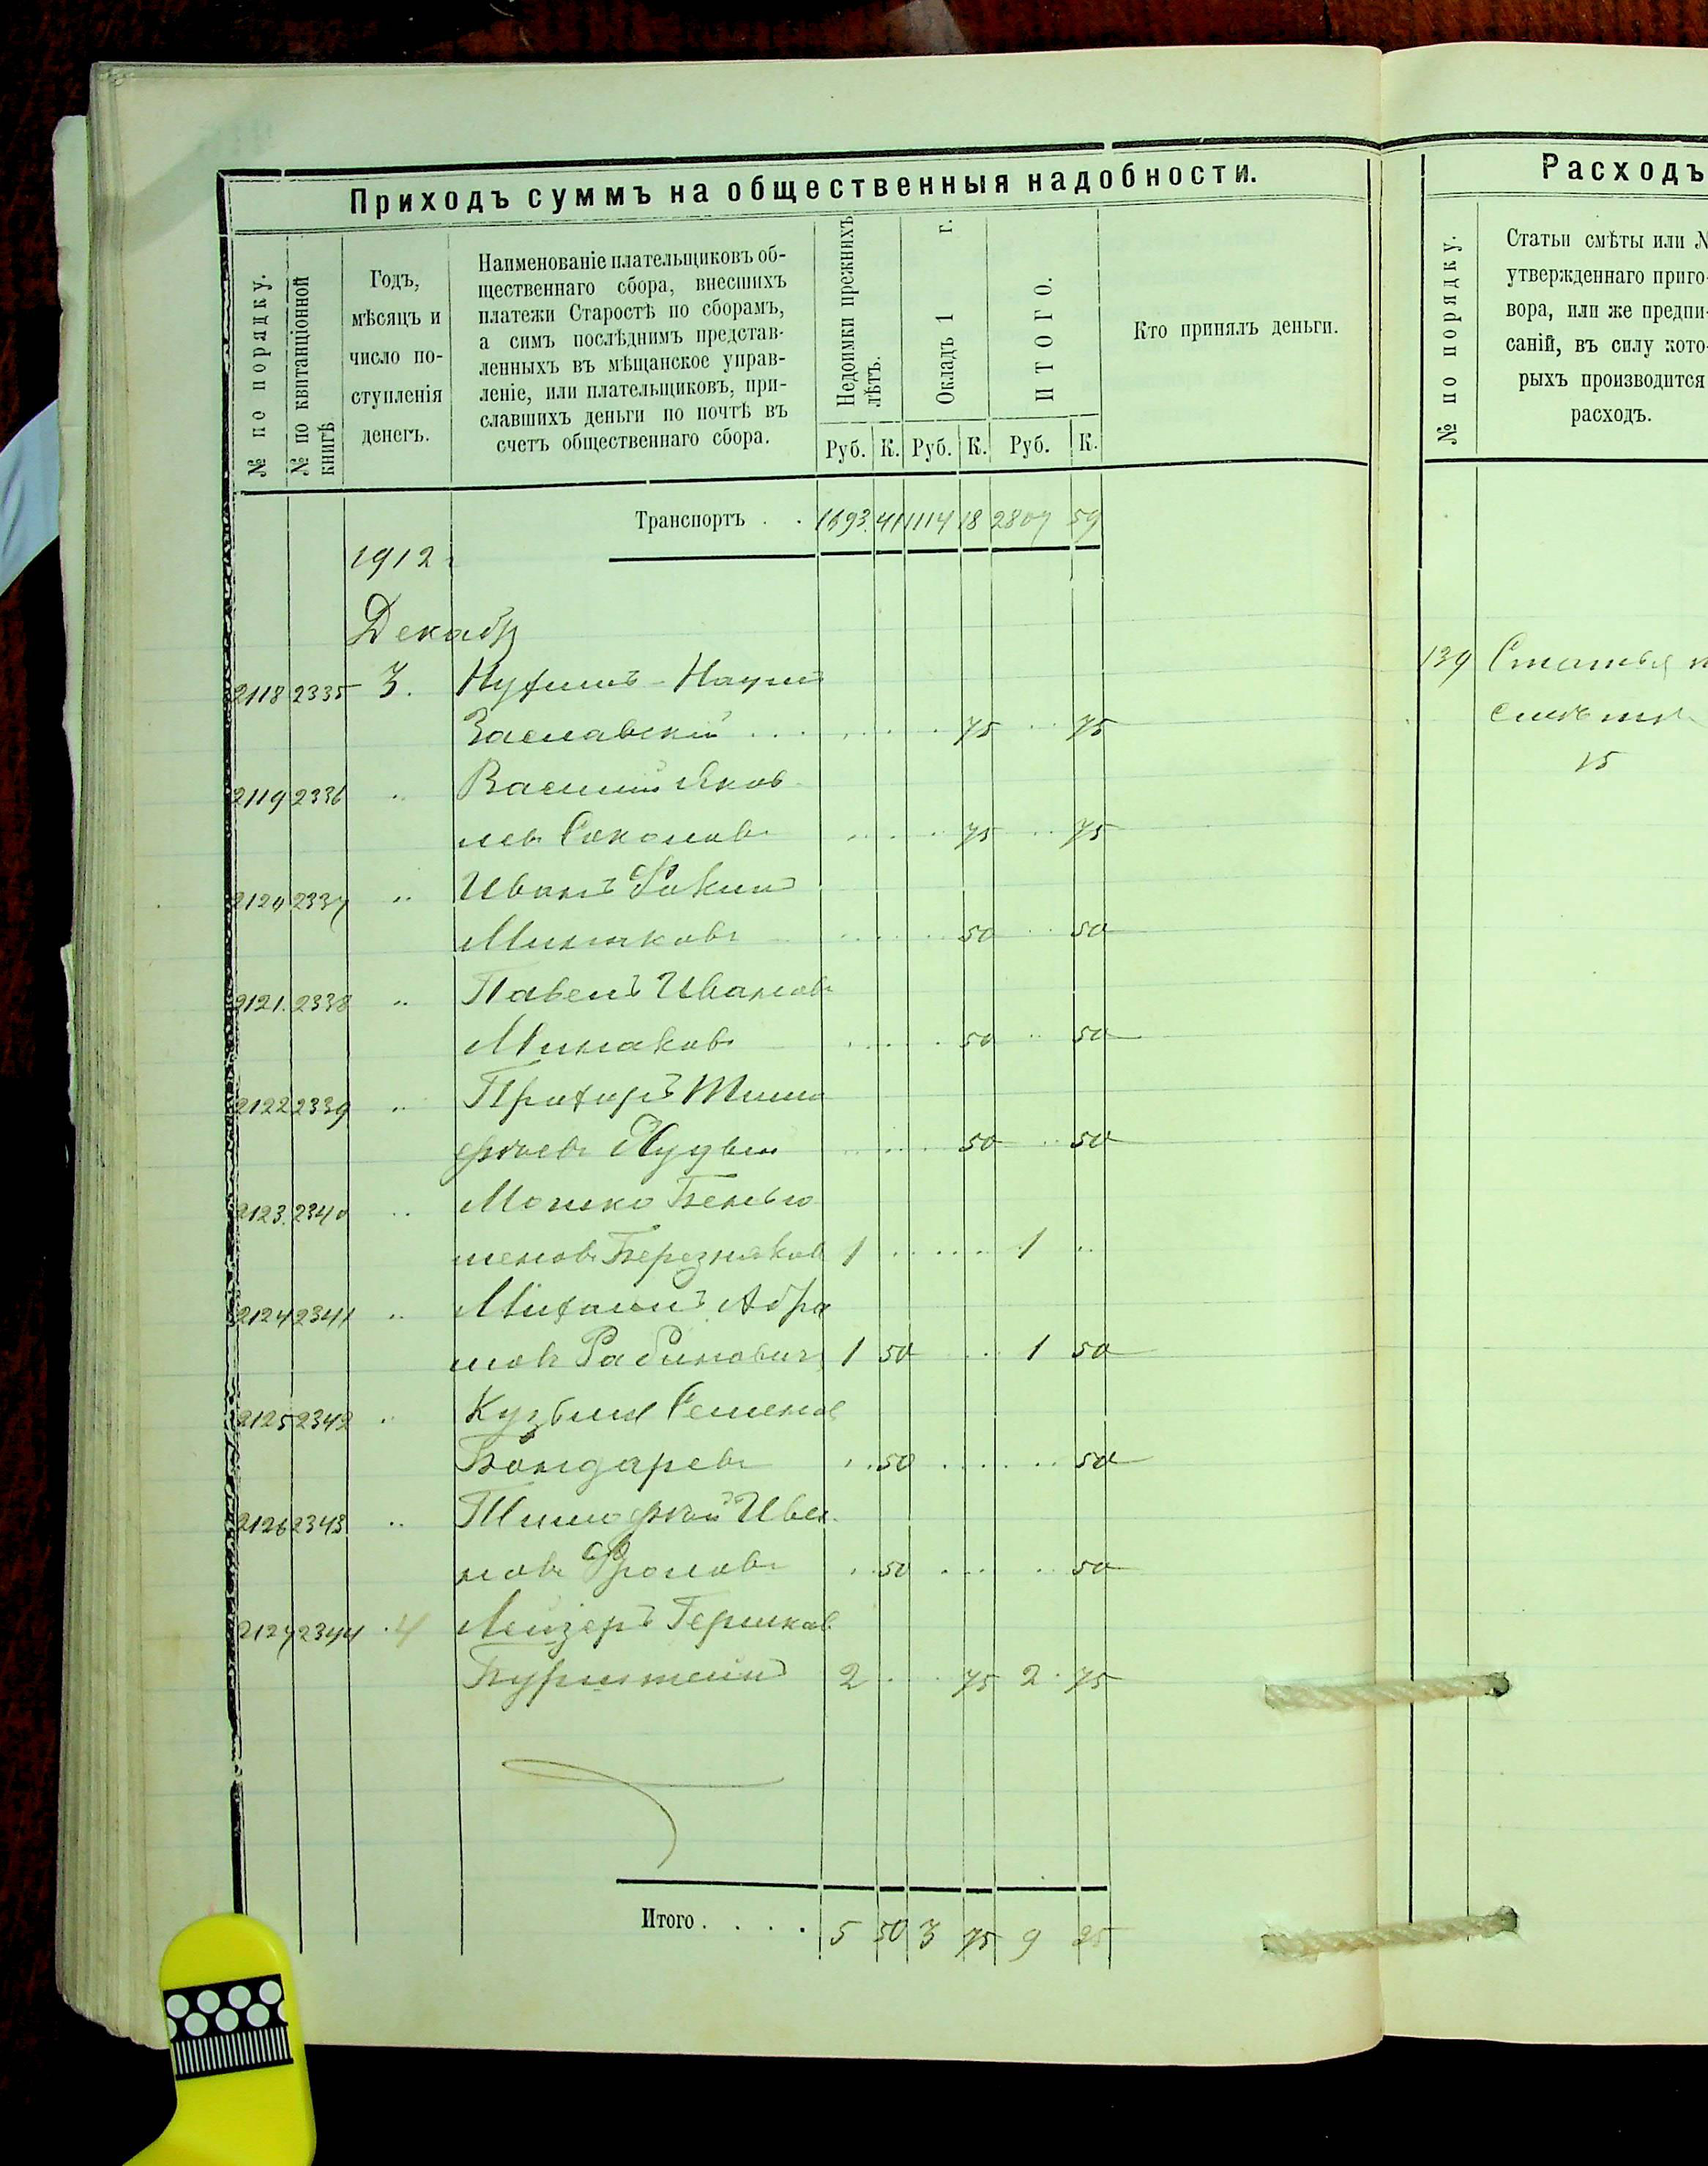 Приходъ суммъ на общественныя надобности.
№ по порядку.
№ по квитанціонной книгѣ
Годъ,
мѣсяцъ и
число по-
ступленія
денегъ.
Наименованіе плательщиковъ об-
щественнаго сбора, внесшихъ
платежи Старостѣ по сборамъ,
а симъ послѣднимъ представ-
ленныхъ въ мѣщанское управ-
леніе, или плательщиковъ, при-
славшихъ деньги по почтѣ въ
счетъ общественнаго сбора.
Недоимки прежнихъ лѣтъ.
Окладъ 1 г.
ИТОГО.
Кто принялъ деньги.
Руб. К. Руб. К. Руб. К.
Транспортъ . . 1693 41 1114 18 2807 59
1912
Декабр
2118 2335 3.
Заславскій 75 75
2119 2336 .. Василій Яков
лев Соколовъ 75 75
2120 2337 .. Иванъ
Минаковъ 50 50
2121. 2338 .. Павелъ Ивановъ
Минаковъ 50 50
2122 2339 .. Прохоръ Тимо
фѣевъ 50 50
2123. 2340 .. Мошко Бенью
меновъ Березняков 1 1 ..
2124 2341 .. Михаилъ Абра
мовъ Рабинович 1 50 1 50
2125 2342 .. Кузьма Семенов
Бондаревъ 50 50
2126 2343 .. Тимофѣй Ива
новъ Фроловъ 50 50
2127 2344 . 4 Лейзеръ Гершков
Бурштейнъ 2 75 2 75
Итого . . . . 5 50 3 75 9 25
Расходъ
№ по порядку.
Статьи смѣты или №
утвержденнаго приго-
вора, или же предпи-
саній, въ силу кото-
рыхъ производится
расходъ.
139 Статья
смѣты
15